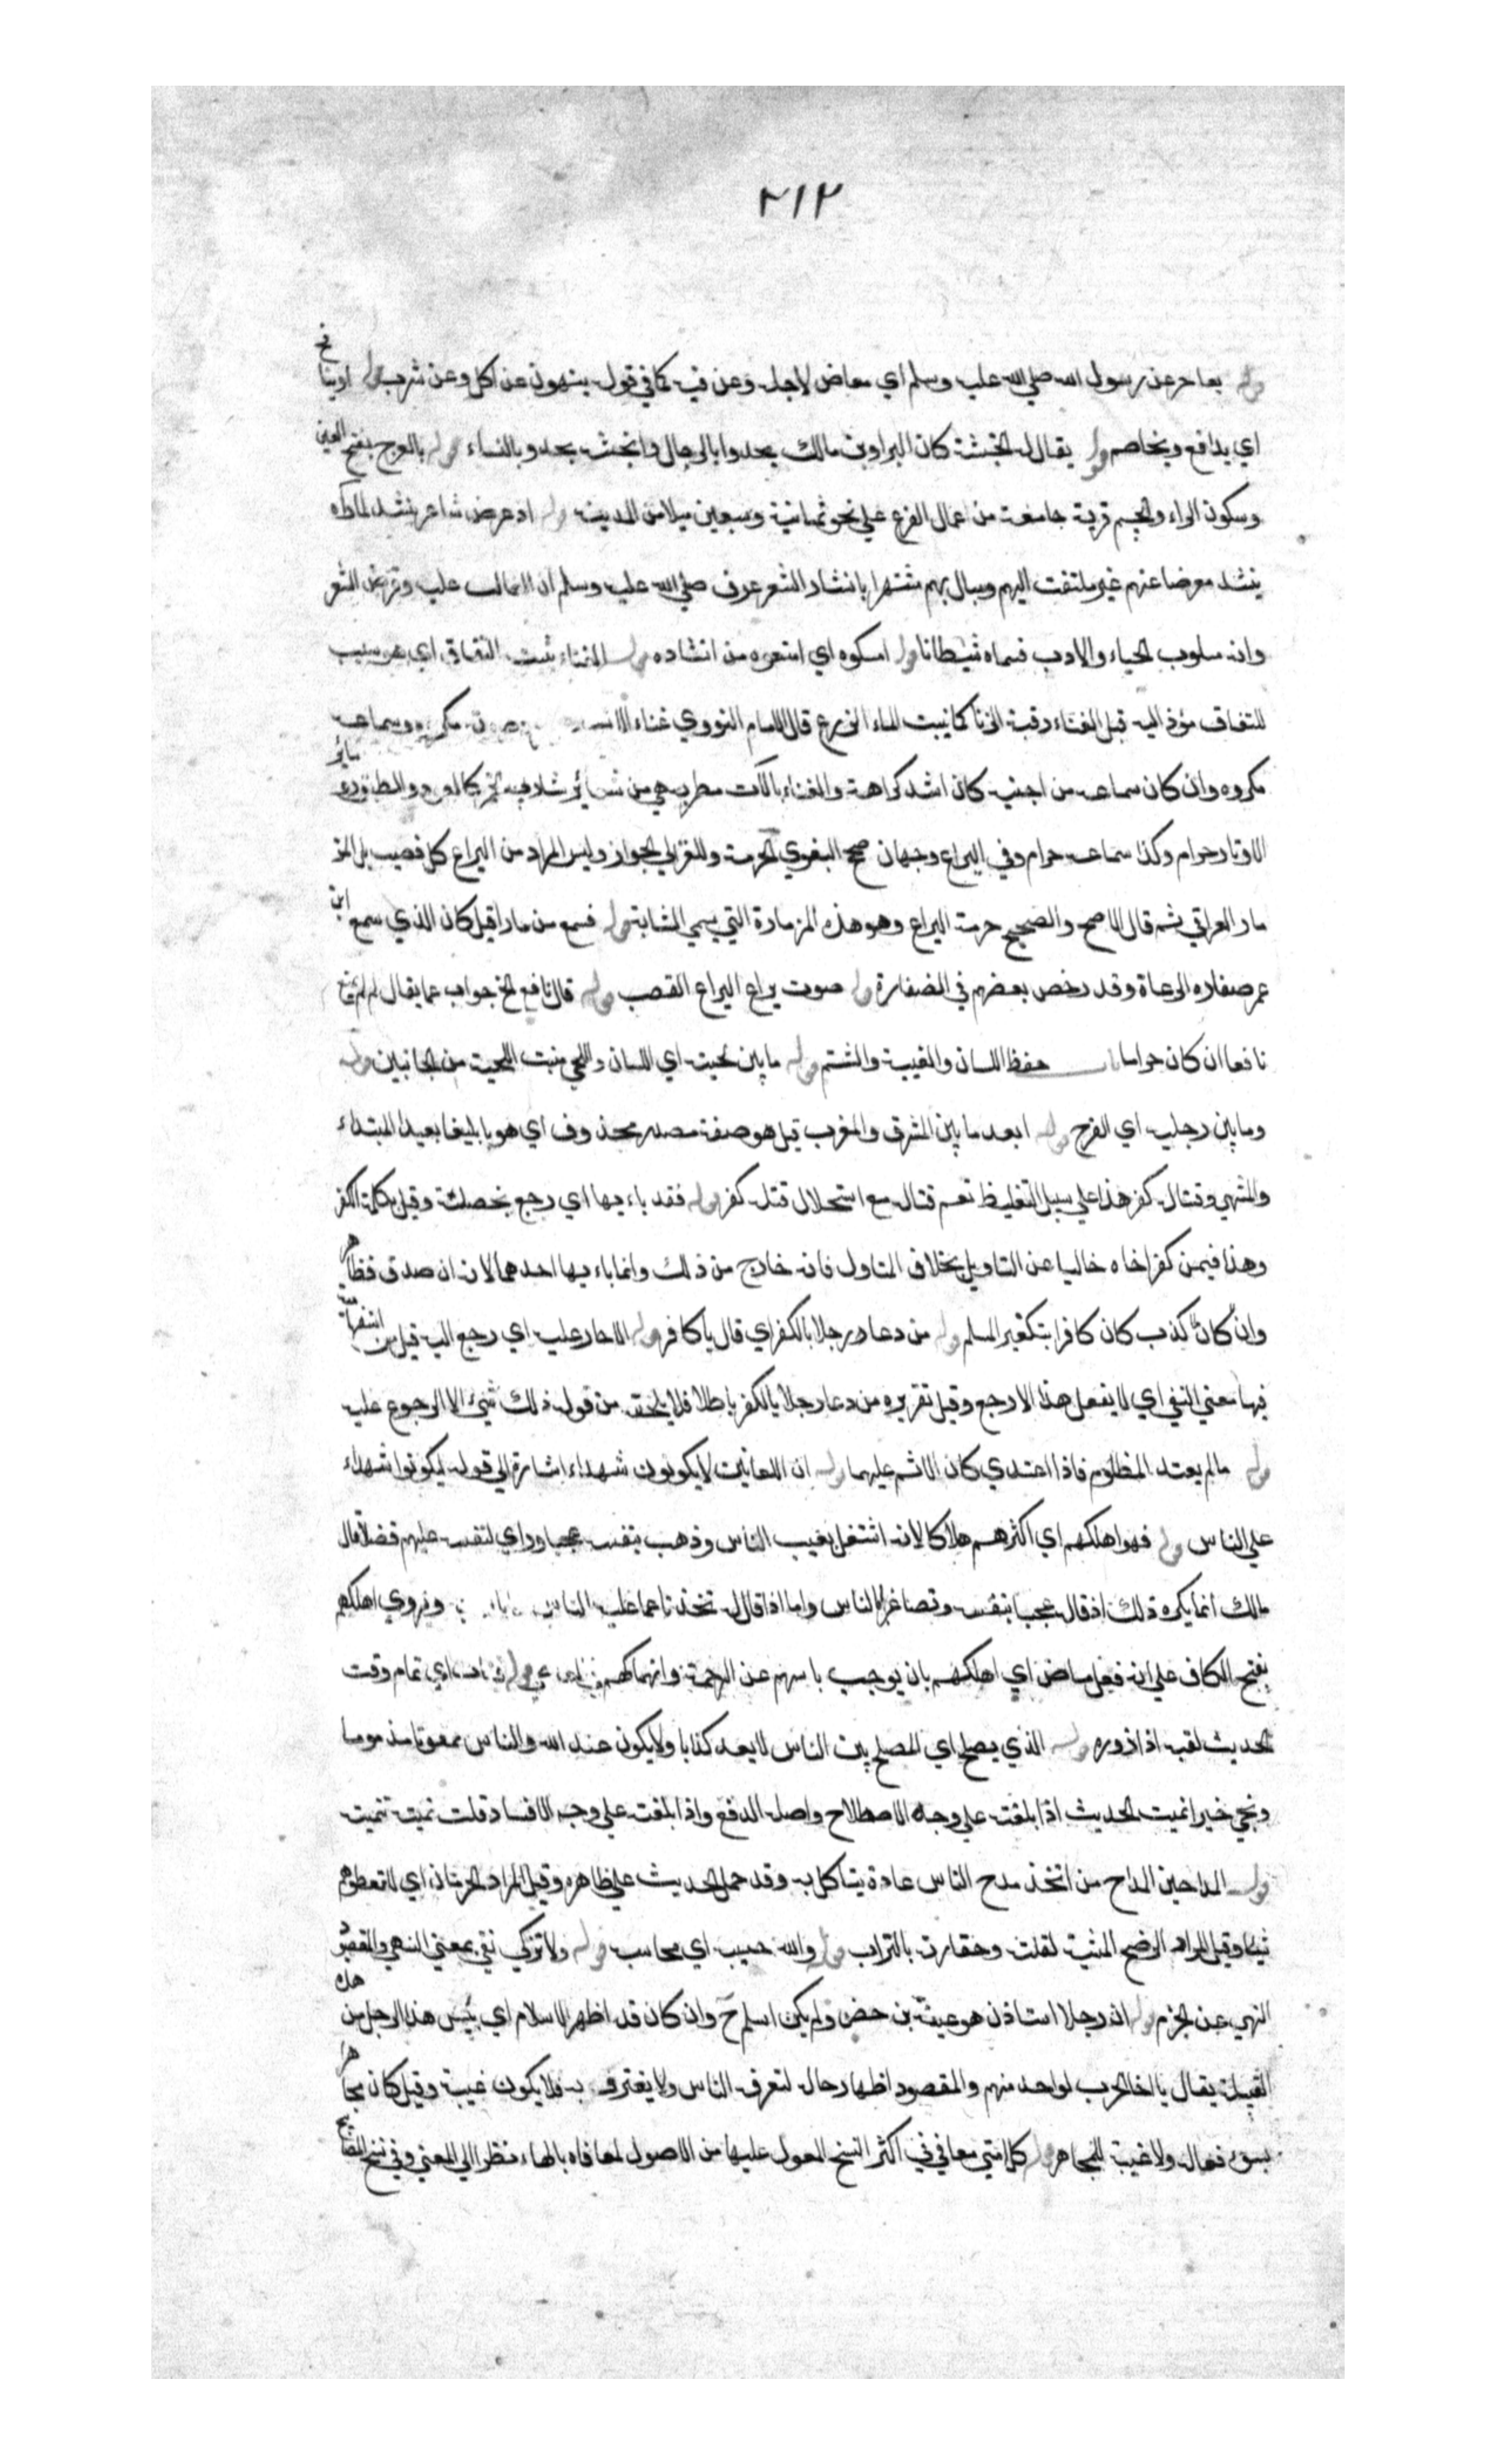 ٢١٢
قوله يفاخر عن رسول الله صلي الله عليه وسلم اي معارض لاجله وعن فيه كما في قوله ينهون عن اكل وعن شرب قوله اوينافح
اي يدافع ويخاصم قوله يقال له انجشة كان البراء بن مالك يحدوا بالرجال وانجشه يحدو بالنساء قوله بالعرج بفتح العين
وسكون الراء والجيم قرية جامعة من اعمال الفرع علي نحو ثمانية وسبعين ميلا من المدينه قوله اذ عرض شاعر ينشد لما راه
ينشد معرضا عنهم غير ملتفت اليهم ومبال بهم مشتهرا بانشاد الشعر عرف صلي الله عليه وسلم ان الغالب عليه وقرض الشعر
وانه مسلوب الحياء والادب فسماه شيطانا قوله امسكوه اي امنعوه من انشاده قوله الغناء ينبت النفاق اي هو سبب
للنفاق مؤد اليه قيل الغناء رقية الزنا كما ينبت الماء الزرع قال الامام النووي غناء الانسان صوته مكروه وسماعه
مكروه وان كان سماعه من اجنبيه كان اشد كراهة والغناء بالات مطربه هي من شعائر شاربي الخمر كالعود والطنبور وسائر
الاوتار حرام وكذا سماعه حرام وفي اليراع وجهان صحح البغوي الحرمة والغزالي الجواز وليس المراد من اليراع كل قصب بل المز
مار العراقي ثم قال الاصح والصحيح حرمة اليراع وهو هذه المزمارة التي يسمي الشبابة قوله فسمع مزمارا قيل كان الذي سمع ابن
عمر صفارة الرعاة وقد رخص بعضهم في الصفارة قوله صوت يراع اليراع القصب قوله قال نافع الخ جواب عما يقال لم لم يمنع
نافعا ان كان حراما باب حفظ اللسان والغيبة والشتم قوله ما بين لحييه اي اللسان واللحي منبت اللحية من الجانبين قوله
وما بين رجليه اي الفرج قوله ابعد ما بين المشرق والمغرب قيل هو صفة مصدر محذوف اي هويا بليغا بعيد المبتداء
والمنتهي وقتاله كفر هذا علي سبيل التغليظ نعم قتاله مع استحلال قتله كفر قوله فقد باء بها اي رجع بخصلته وقيل بكلمة الكفر
وهذا فيمن كفر اخاه خاليا عن التاويل بخلاف المتاول فانه خارج من ذلك وانما باء بها احدهما لانه ان صدق فظاهر
وان كان كذب كان كافرا بتكفير المسلم قوله من دعا رجلا بالكفر اي قال ياكافر قوله الا حار عليه اي رجع اليه قيل من استفهامية
فيها معني النفي اي لا يفعل هذا الا رجع وقيل تقريره من دعا رجلا بالكفر باطلا فلا يلحقه من قوله ذلك شيئ الا الرجوع عليه
قوله مالم يعتد المظلوم فاذا اعتدي كان الاثم عليهما قوله ان اللعانين لا يكونون شهداء اشارة الي قوله ليكونوا شهداء
علي الناس قوله فهو اهلكهم اي اكثرهم هلاكا لانه اشتغل بعيب الناس وذهب بنفسه عجبا وراي لنفسه عليهم فضلا قال
مالك انما يكره ذلك اذ قال عجبا بنفسه وتصاغرا للناس واما اذا قاله تحزنا عما عليه الناس ويروي اهلكهم
بفتح الكاف علي انه فعل ماض اي اهلكهم بان يوجب ياسهم عن الرحمة وانهماكهم اي تمام وقت
الحديث لقبه اذا زوره قوله الذي يصلح اي المصلح بين الناس لا يعد كذابا ولا يكون عند الله والناس ممقوتا مذموما
وينمي خيرا نميت الحديث اذا بلغته علي وجه الاصطلاح واصله الدفع واذا بلغته علي وجه الافساد قلت نميته تنمية
قوله المداحين المداح من اتخذ مدح الناس عادة يتاكل به وقد حمل الحديث علي ظاهره وقيل المراد الحرمان اي لا تعطوهم
شيئا وقيل المراد الرضح المثيب لقلته وحقارته بالتراب قوله والله حسيبه اي محاسبه قوله ولا تزكي نفي بمعني النهي والقصد
النهي عن الجزم قوله ان رجلا استاذن هو عيينة بن حصن ولم يكن اسلم ح وان كان قد اظهر الاسلام اي بئس هذا الرجل من هذه
القبيلة يقال يا اخا العرب لواحد منهم والمقصود اظهار حاله لتعرفه الناس ولا يغتر به فلا يكون غيبة وقيل كان مجاهرا
بسوء فعاله ولا غيبة للمجاهر قوله كل امتي معافي في اكثر النسخ المعول عليها من الاصول معافاه بالهاء نظرا الي المعني وفي نسخ المصابيح